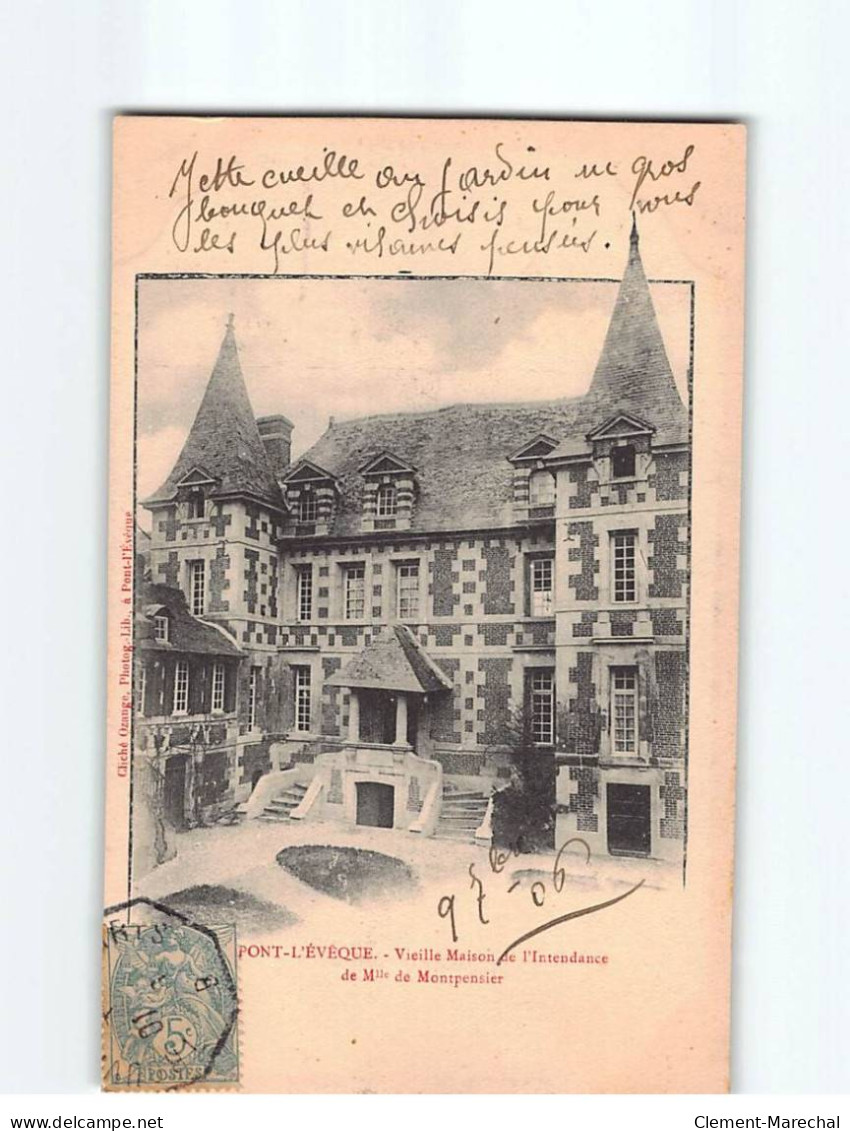 Yette cueille au jardin un gros
bouquet et choisis pour vous
les plus vilaines pensées.
Cliché Ozange, Photog.-Lib., à Pont-l'Évêque
9 7bre - 06
PONT-L'ÉVÊQUE. - Vieille Maison de l'Intendance
de Mlle de Montpensier
5c
POSTES
Clement-Marechal